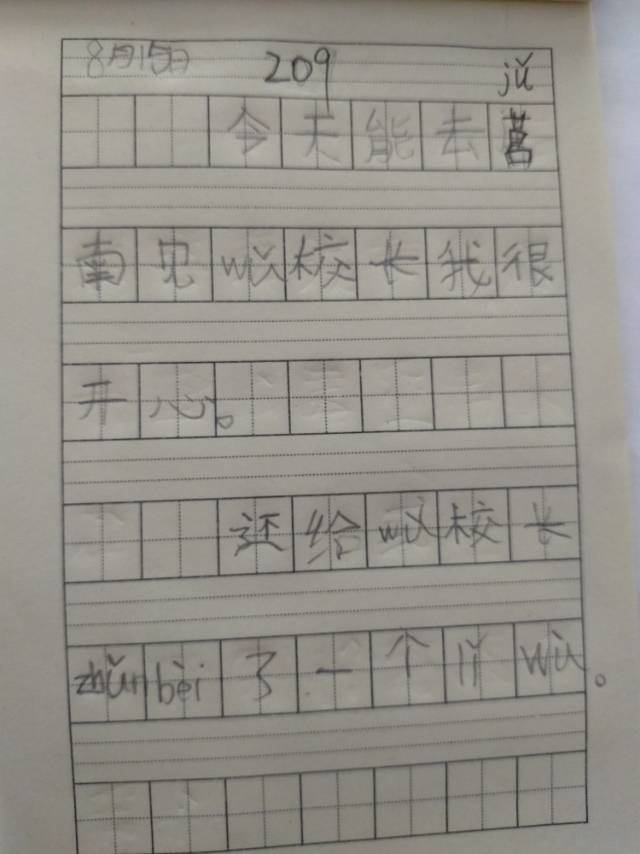 8月15日 209 jǔ
今天能去莒
南见wǔ校长我很
开心。
还给wǔ校长
zhǔnbèi了一个lǐwù。